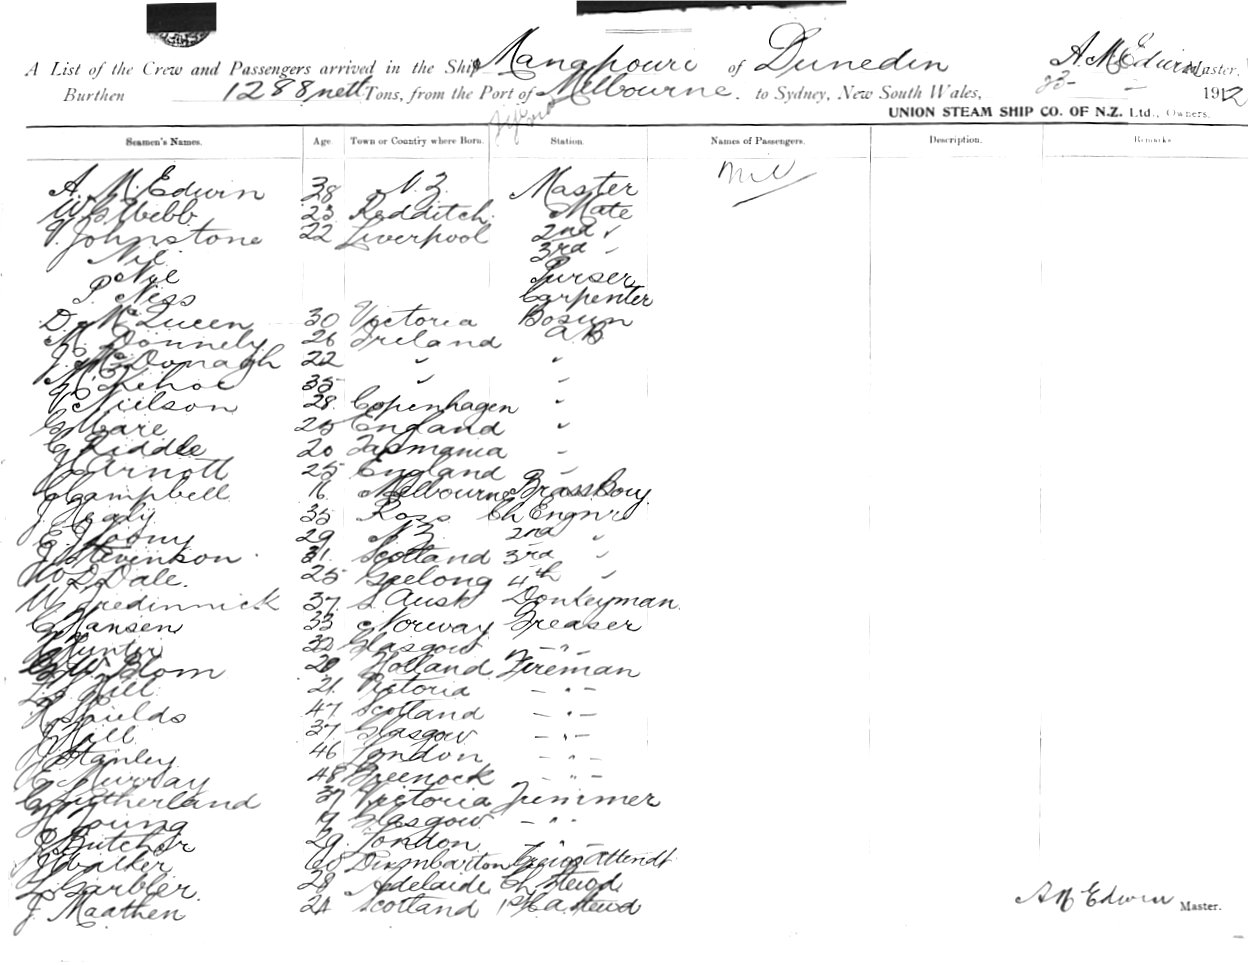 A List of the Crew and Passengers arrived in the Ship Manapouri of Dunedin A. M. Edwin Master,
Burthen 1288 nett Tons, from the Port of Melbourne. to Sydney, New South Wales, 1912
UNION STEAM SHIP CO. OF N.Z. Ltd., Owners.
Seamen's Names. Age Town or Country where Born. Station. Names of Passengers. Description. Remarks
A. M. Edwin 38 N.Z. Master Nil
W G Webb 23 Redditch Mate
Johnstone 22 Liverpool 2nd "
Nil 3rd "
Nil Purser
P. Ness Carpenter
D. McQueen 30 Victoria Bosun
M. Donnely 26 Ireland A.B.
J. McDonagh 22 " "
Kehoe 35 " "
Nielson 28 Copenhagen "
G Ware 25 England "
C Riddle 20 Tasmania "
Arnott 25 England "
C Campbell 16 Melbourne Brass Boy
J Healy 35 Ross Ch Engnr
E 29 N.Z. 2nd "
J Stevenson 31 Scotland 3rd "
W L Dale. 25 Geelong 4th "
W Tredinnick 37 S. Aust Donkeyman
C Hansen 33 Norway Greaser
Hunter 32 Glasgow - " -
Blom 20 Holland Fireman
Hill 21 Victoria - " -
Shields 47 Scotland - " -
J Hill 37 Glasgow - " -
J Stanley 46 London - " -
E Murray 48 Greenock - " -
C Sutherland 37 Victoria Trimmer
Young 19 Glasgow - " -
Butcher 29 London - " -
J Walker 60 Dumbarton Attendt
L Garbler 28 Adelaide Ch Stewd
J. Maathen 24 Scotland Stewd
A M Edwin Master.